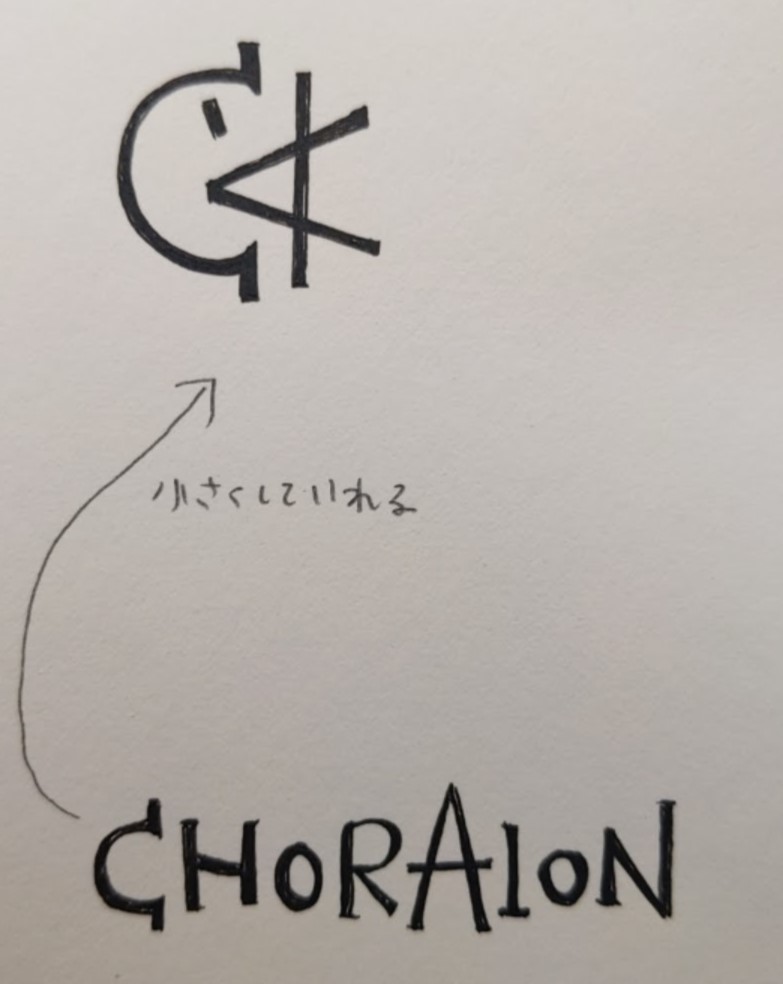 CA
小さくしていれる
CHORAION